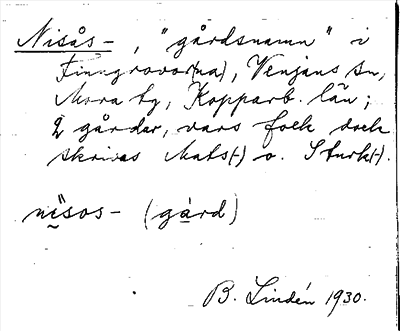 Nisås- , "gårdsnamn" i
Finngrovor(na), Venjans sn,
Mora tg, Kopparb. län;
2 gårdar, vars folk dock
skrivas Mats(-) o. Sturk(-).
nisos- (gård)
B. Lindén 1930.